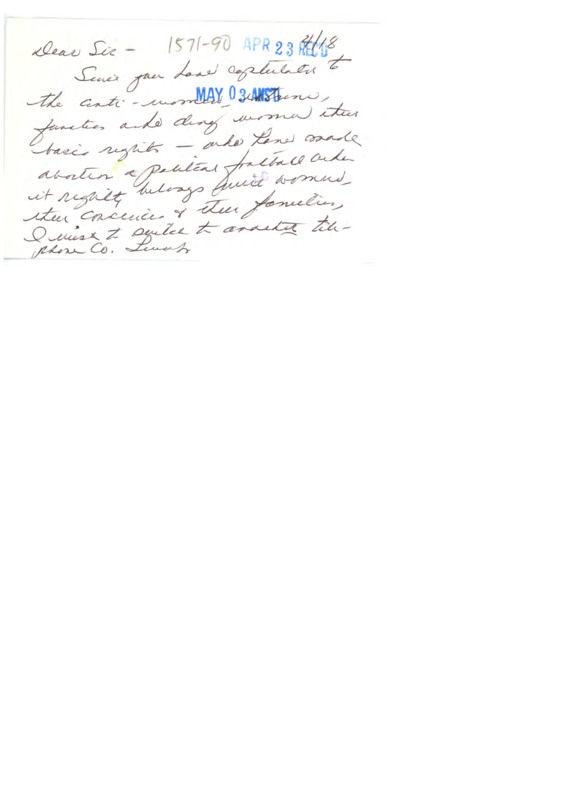 Dear Sir – 1571-90 APR 23 REC'D 4/18
Since you have capitulated to
the anti-women,
MAY 03 ANS'D
who deny women their
basic rights – who have made
abortion a political football when
it rightly belongs with women,
their & their families,
I wish to switch to another tele-
phone Co.